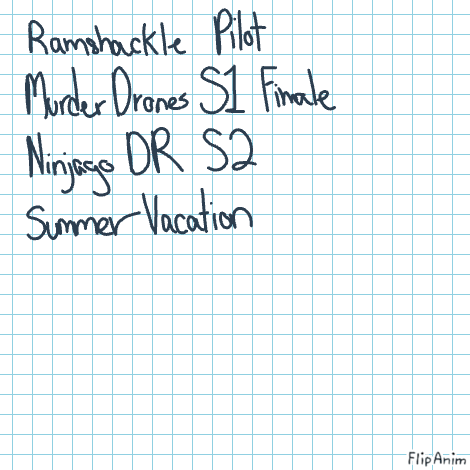 Ramshackle Pilot
Murder Drones S1 Finale
Ninjago DR S2
Summer Vacation
FlipAnim